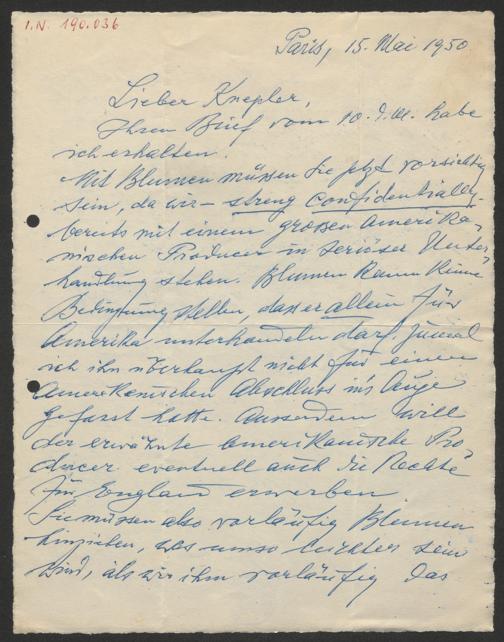 I.N. 190.036
Paris, 15. Mai 1950
Lieber Knepler,
Ihren Brief vom 10. d.M. habe
ich erhalten.
Mit Blumen müssen Sie jetzt vorsichtig
sein, da wir – streng confidentially –
bereits mit einem grossen Amerika-
nischen Producer in seriöser Unter-
handlung stehen. Blumen kann keine
Bedingung stellen, dass er allein für
Amerika unterhandeln darf, zumal
ich ihn überhaupt nicht für einen
Amerikanischen Abschluss in's Auge
gefasst hatte. Ausserdem will
der erwähnte Amerikanische Pro-
ducer eventuell auch die Rechte
für England erwerben.
Sie müssen also vorläufig Blumen
hinziehen, was umso leichter sein
wird, als wir ihm vorläufig das